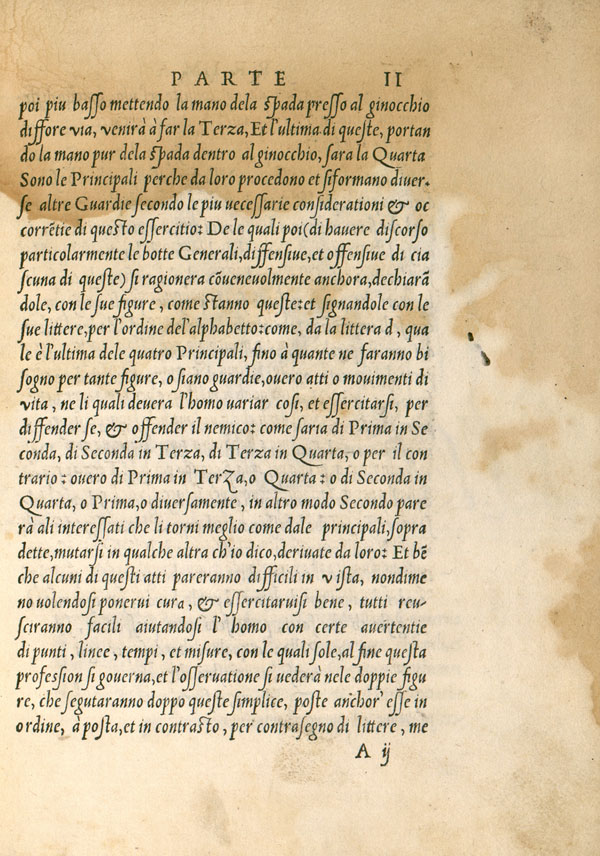 PARTE II
poi piu basso mettendo la mano dela spada presso al ginocchio
diffore via, venirà à far la Terza, Et l'ultima di queste, portan
do la mano pur dela spada dentro al ginocchio, sara la Quarta
Sono le Principali perche da loro procedono et si formano diver.
se altre Guardie secondo le piu uecessarie considerationi & oc
corrētie di questo essercitio: De le quali poi (di hauere discorso
particolarmente le botte Generali, diffensiue, et offensiue di cia
scuna di queste) si ragionera cōueneuolmente anchora, dechiarā
dole, con le sue figure, come stanno queste: et signandole con le
sue littere, per l'ordine del'alphabetto: come, da la littera d, qua
le è l'ultima dele quatro Principali, fino à quante ne faranno bi
sogno per tante figure, o siano guardie, ouero atti o mouimenti di
vita, ne li quali deuera l'homo uariar cosi, et essercitarsi, per
diffender se, & offender il nemico: come saria di Prima in Se
conda, di Seconda in Terza, di Terza in Quarta, o per il con
trario: ouero di Prima in TerZa, o Quarta: o di Seconda in
Quarta, o Prima, o diuersamente, in altro modo Secondo pare
rà ali interessati che li torni meglio come dale principali, sopra
dette, mutarsi in qualche altra ch'io dico, deriuate da loro: Et bē
che alcuni di questi atti pareranno difficili in vista, nondime
no uolendosi ponerui cura, & essercitaruisi bene, tutti reu-
sciranno facili aiutandosi l' homo con certe auertentie
di punti, linee, tempi, et misure, con le quali sole, al fine questa
profession si governa, et l'osseruatione si uederà nele doppie figu
re, che segutaranno doppo queste simplice, poste anchor' esse in
ordine, à posta, et in contrasto, per contrasegno di littere, me
A ij